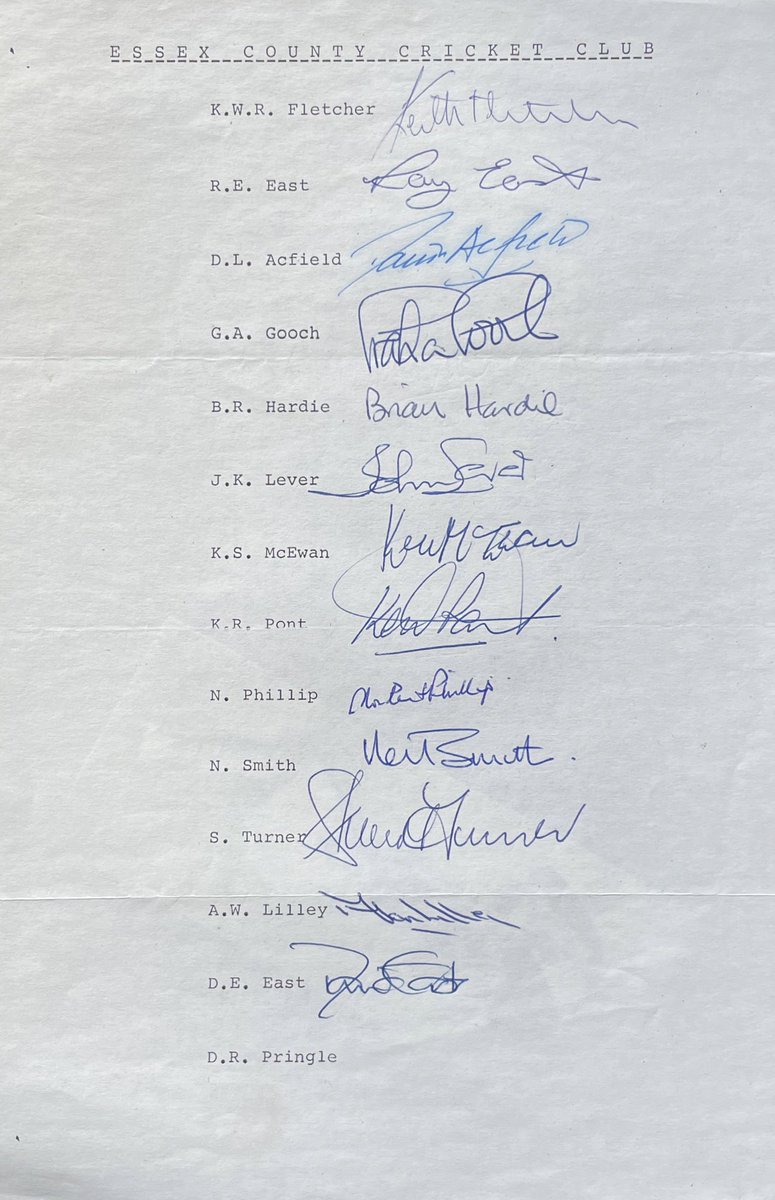 ESSEX COUNTY CRICKET CLUB
K.W.R. Fletcher Keith Fletcher
R.E. East Ray East
D.L. Acfield David Acfield
G.A. Gooch Graham Gooch
B.R. Hardie Brian Hardie
J.K. Lever John Lever
K.S. McEwan Ken McEwan
K.R. Pont Keith Pont
N. Phillip Norbert Phillip
N. Smith Neil Smith
S. Turner Stuart Turner
A.W. Lilley Alan Lilley
D.E. East David East
D.R. Pringle